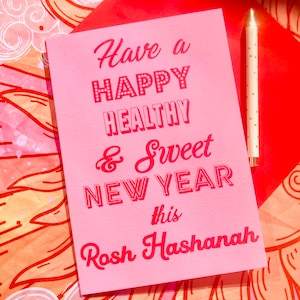 Have a
HAPPY
HEALTHY
& Sweet
NEW YEAR
this
Rosh Hashanah